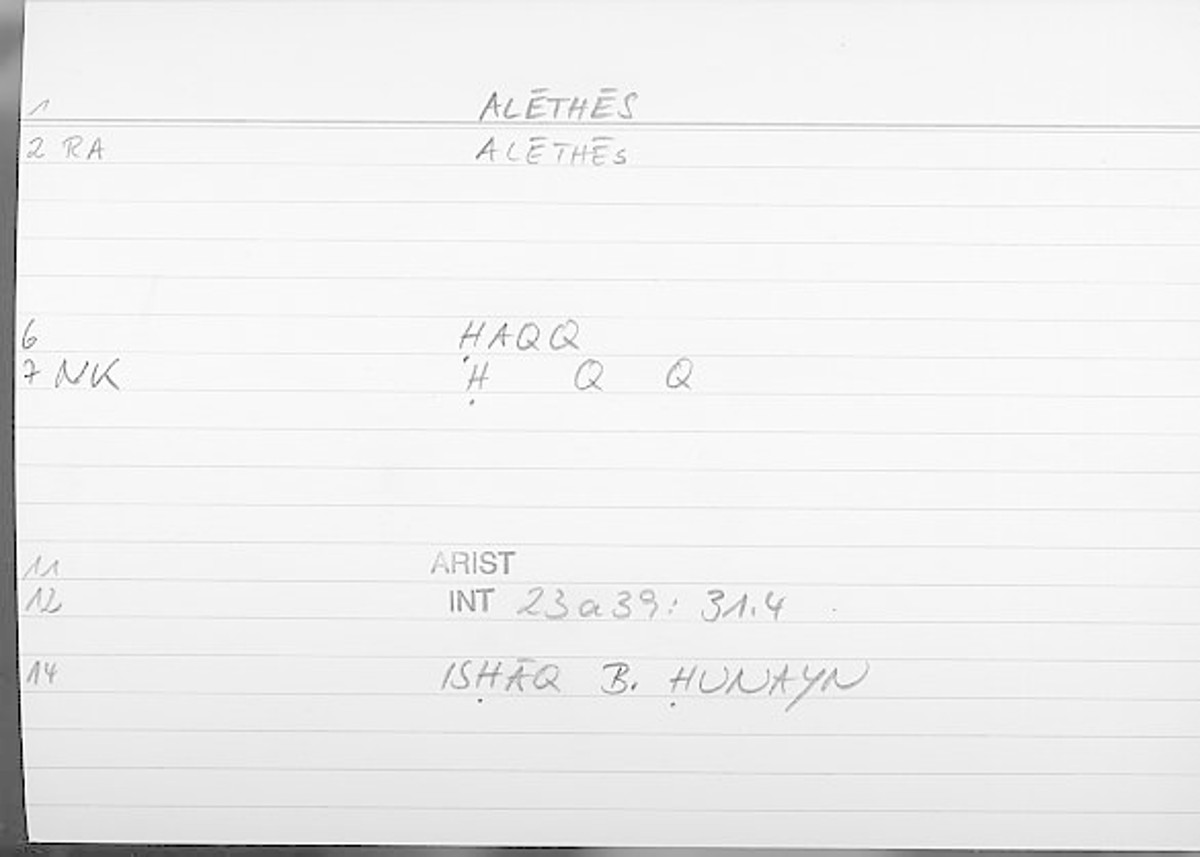 1 ALĒTHĒS
2 RA ALĒTHĒS
6 ḤAQQ
7 NK Ḥ Q Q
11 ARIST
12 INT 23a39: 31.4
14 ISḤĀQ B. ḤUNAYN